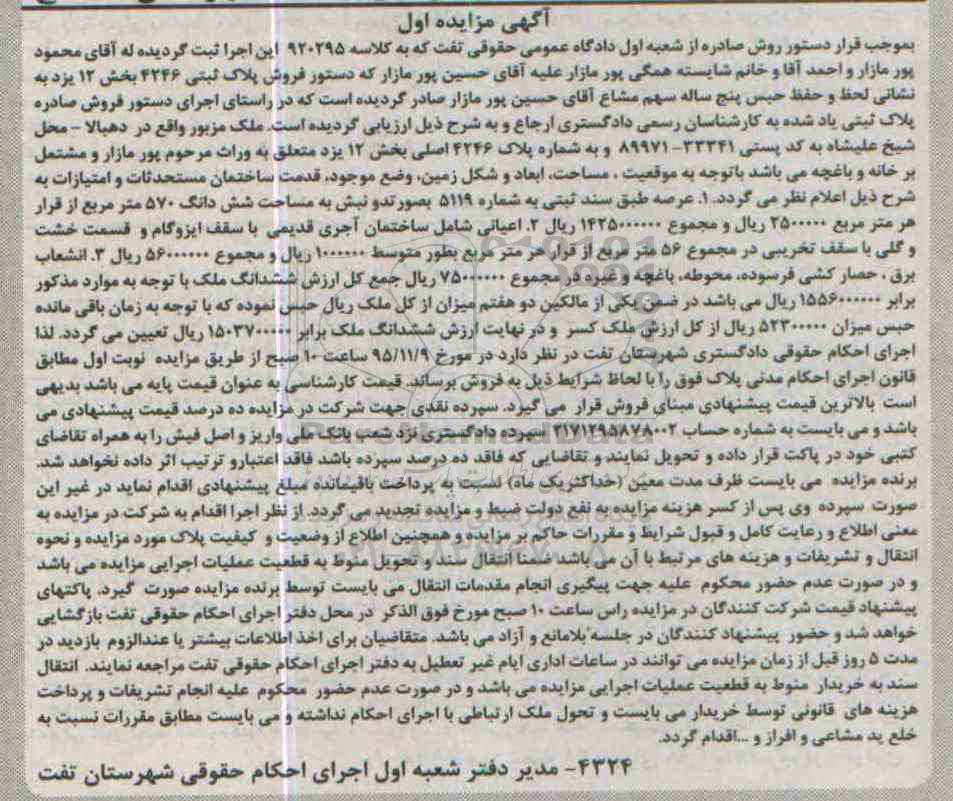 آگهی مزایده اول
بموجب قرار دستور روش صادره از شعبه اول دادگاه عمومی حقوقی تفت که به کلاسه ۹۲۰۲۹۵ این اجرا ثبت گردیده له آقای محمود
پور مازار و احمد آقا و خانم شایسته همگی پور مازار علیه آقای حسین پور مازار که دستور فروش پلاک ثبتی ۴۲۴۶ بخش ۱۲ یزد به
نشانی لحظ و حفظ حبس پنج ساله سهم مشاع آقای حسین پور مازار صادر گردیده است که در راستای اجرای دستور فروش صادره
پلاک ثبتی یاد شده به کارشناسان رسمی دادگستری ارجاع و به شرح ذیل ارزیابی گردیده است. ملک مزبور واقع در دهبالا - محل
شیخ علیشاه به کد پستی ۳۳۳۴۱-۸۹۹۷۱ و به شماره پلاک ۴۲۴۶ اصلی بخش ۱۲ یزد متعلق به وراث مرحوم پور مازار و مشتمل
بر خانه و باغچه می باشد باتوجه به موقعیت ، مساحت، ابعاد و شکل زمین، وضع موجود، قدمت ساختمان مستحدثات و امتیازات به
شرح ذیل اعلام نظر می گردد. ۱. عرصه طبق سند ثبتی به شماره ۵۱۱۹ بصورتدو نبش به مساحت شش دانگ ۵۷۰ متر مربع از قرار
هر متر مربع ۲۵۰۰۰۰۰ ریال و مجموع ۱۴۲۵۰۰۰۰۰۰ ریال ۲. اعیانی شامل ساختمان آجری قدیمی با سقف ایزوگام و قسمت خشت
و گلی با سقف تخریبی در مجموع ۵۶ متر مربع از قرار هر متر مربع بطور متوسط ۱۰۰۰۰۰۰ ریال و مجموع ۵۶۰۰۰۰۰۰ ریال ۳. انشعاب
برق ، حصار کشی فرسوده، محوطه، باغچه و غیره در مجموع ۷۵۰۰۰۰۰۰ ریال جمع کل ارزش ششدانگ ملک با توجه به موارد مذکور
برابر ۱۵۵۶۰۰۰۰۰۰ ریال می باشد در ضمن یکی از مالکین دو هفتم میزان از کل ملک ریال حبس نموده که با توجه به زمان باقی مانده
حبس میزان ۵۲۳۰۰۰۰۰ ریال از کل ارزش ملک کسر و در نهایت ارزش ششدانگ ملک برابر ۱۵۰۳۷۰۰۰۰۰ ریال تعیین می گردد. لذا
اجرای احکام حقوقی دادگستری شهرستان تفت در نظر دارد در مورخ ۹۵/۱۱/۹ ساعت ۱۰ صبح از طریق مزایده نوبت اول مطابق
قانون اجرای احکام مدنی پلاک فوق را با لحاظ شرایط ذیل به فروش برساند. قیمت کارشناسی به عنوان قیمت پایه می باشد بدیهی
است بالاترین قیمت پیشنهادی مبنای فروش قرار می گیرد. سپرده نقدی جهت شرکت در مزایده ده درصد قیمت پیشنهادی می
باشد و می بایست به شماره حساب ۲۱۷۱۲۹۵۸۷۸۰۰۲ سپرده دادگستری نزد شعب بانک ملی واریز و اصل فیش را به همراه تقاضای
کتبی خود در پاکت قرار داده و تحویل نمایند و تقاضایی که فاقد ده درصد سپرده باشد فاقد اعتبارو ترتیب اثر داده نخواهد شد.
برنده مزایده می بایست ظرف مدت معین (حداکثریک ماه) نسبت به پرداخت باقیمانده مبلغ پیشنهادی اقدام نماید در غیر این
صورت سپرده وی پس از کسر هزینه مزایده به نفع دولت ضبط و مزایده تجدید می گردد. از نظر اجرا اقدام به شرکت در مزایده به
معنی اطلاع و رعایت کامل و قبول شرایط و مقررات حاکم بر مزایده و همچنین اطلاع از وضعیت و کیفیت پلاک مورد مزایده و نحوه
انتقال و تشریفات و هزینه های مرتبط با آن می باشد ضمنا انتقال سند و تحویل منوط به قطعیت عملیات اجرایی مزایده می باشد
و در صورت عدم حضور محکوم علیه جهت پیگیری انجام مقدمات انتقال می بایست توسط برنده مزایده صورت گیرد. پاکتهای
پیشنهاد قیمت شرکت کنندگان در مزایده راس ساعت ۱۰ صبح مورخ فوق الذکر در محل دفتر اجرای احکام حقوقی تفت بازگشایی
خواهد شد و حضور پیشنهاد کنندگان در جلسه بلامانع و آزاد می باشد. متقاضیان برای اخذ اطلاعات بیشتر یا عندالزوم بازدید در
مدت ۵ روز قبل از زمان مزایده می توانند در ساعات اداری ایام غیر تعطیل به دفتر اجرای احکام حقوقی تفت مراجعه نمایند. انتقال
سند به خریدار منوط به قطعیت عملیات اجرایی مزایده می باشد و در صورت عدم حضور محکوم علیه انجام تشریفات و پرداخت
هزینه های قانونی توسط خریدار می بایست و تحول ملک ارتباطی با اجرای احکام نداشته و می بایست مطابق مقررات نسبت به
خلع ید مشاعی و افراز و ...اقدام گردد.
۴۳۲۴- مدیر دفتر شعبه اول اجرای احکام حقوقی شهرستان تفت
ParsNamadData